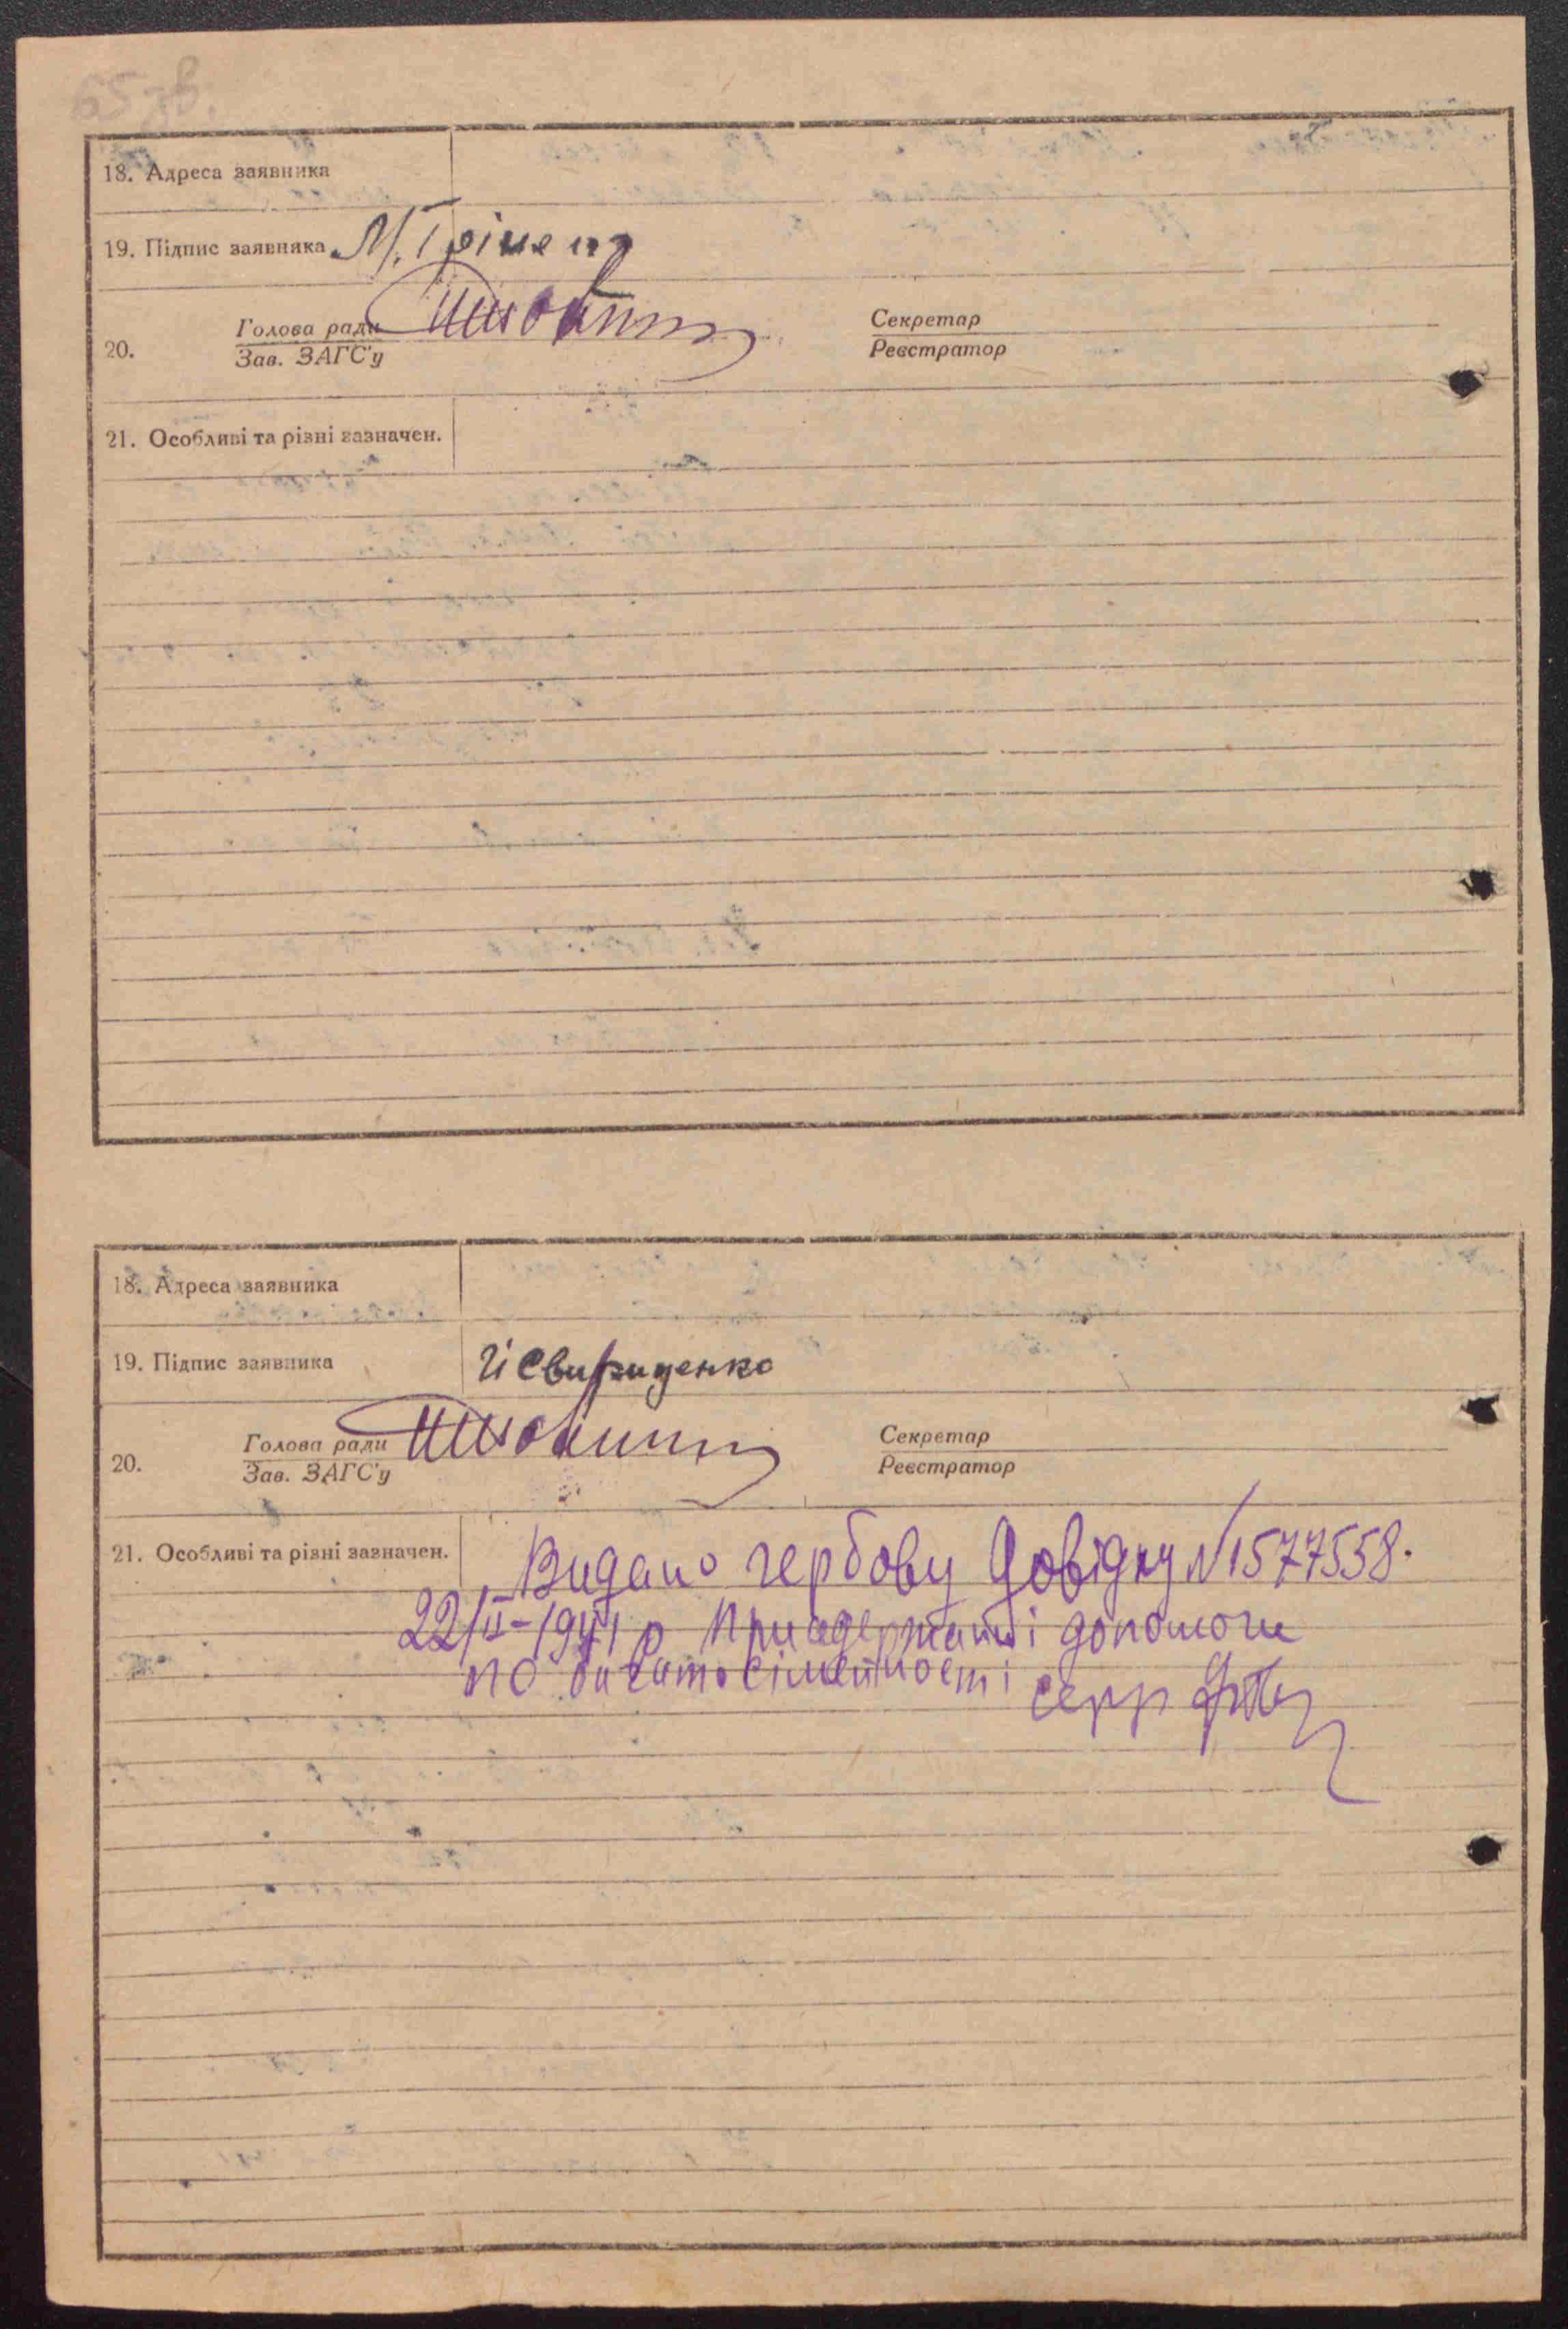 65 зв.
18. Адреса заявника
19. Підпис заявника М. Грінен
20. Голова ради Секретар
Зав. ЗАГС'у Реєстратор
21. Особливі та різні зазначен.
18. Адреса заявника
19. Підпис заявника Й Свириденко
20. Голова ради Секретар
Зав. ЗАГС'у Реєстратор
21. Особливі та різні зазначен. Видано гербову довідку N 1577558.
22/II-1941 р При одержанні допомоги
по багатосімейності